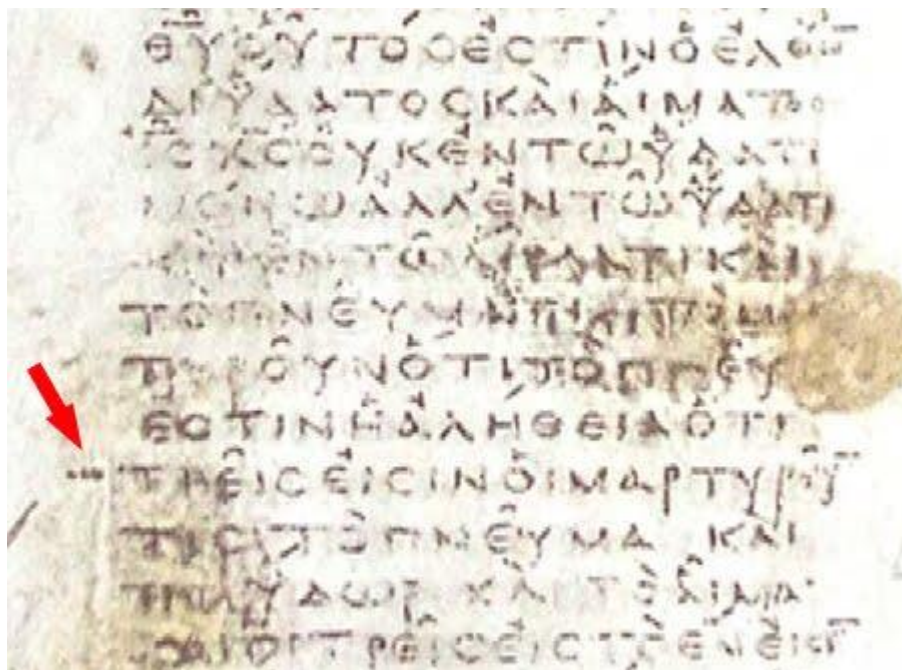 ΘΥ ΟΥΤΟϹ ΕϹΤΙΝ Ο ΕΛΘΩ̅
ΔΙ ΥΔΑΤΟϹ ΚΑΙ ΑΙΜΑΤΟϹ
ΙϹ ΧϹ ΟΥΚ ΕΝ ΤΩ ΥΔΑΤΙ
ΜΟΝΩ ΑΛΛ ΕΝ ΤΩ ΥΔΑΤΙ
ΚΑΙ ΕΝ ΤΩ ΑΙΜΑΤΙ ΚΑΙ
ΤΟ ΠΝΕΥΜΑ
ΤΥΡΟΥΝ ΟΤΙ ΤΟ ΠΝΕΥ
ΕϹΤΙΝ Η ΑΛΗΘΕΙΑ ΟΤΙ
ΤΡΕΙϹ ΕΙϹΙΝ ΟΙ ΜΑΡΤΥΡΟΥ̅
ΤΕϹ ΤΟ ΠΝΕΥΜΑ ΚΑΙ
ΤΟ ΥΔΩΡ ΚΑΙ ΤΟ ΑΙΜΑ
ΚΑΙ ΟΙ ΤΡΕΙϹ ΕΙϹ ΤΟ ΕΝ ΕΙϹΙ̅